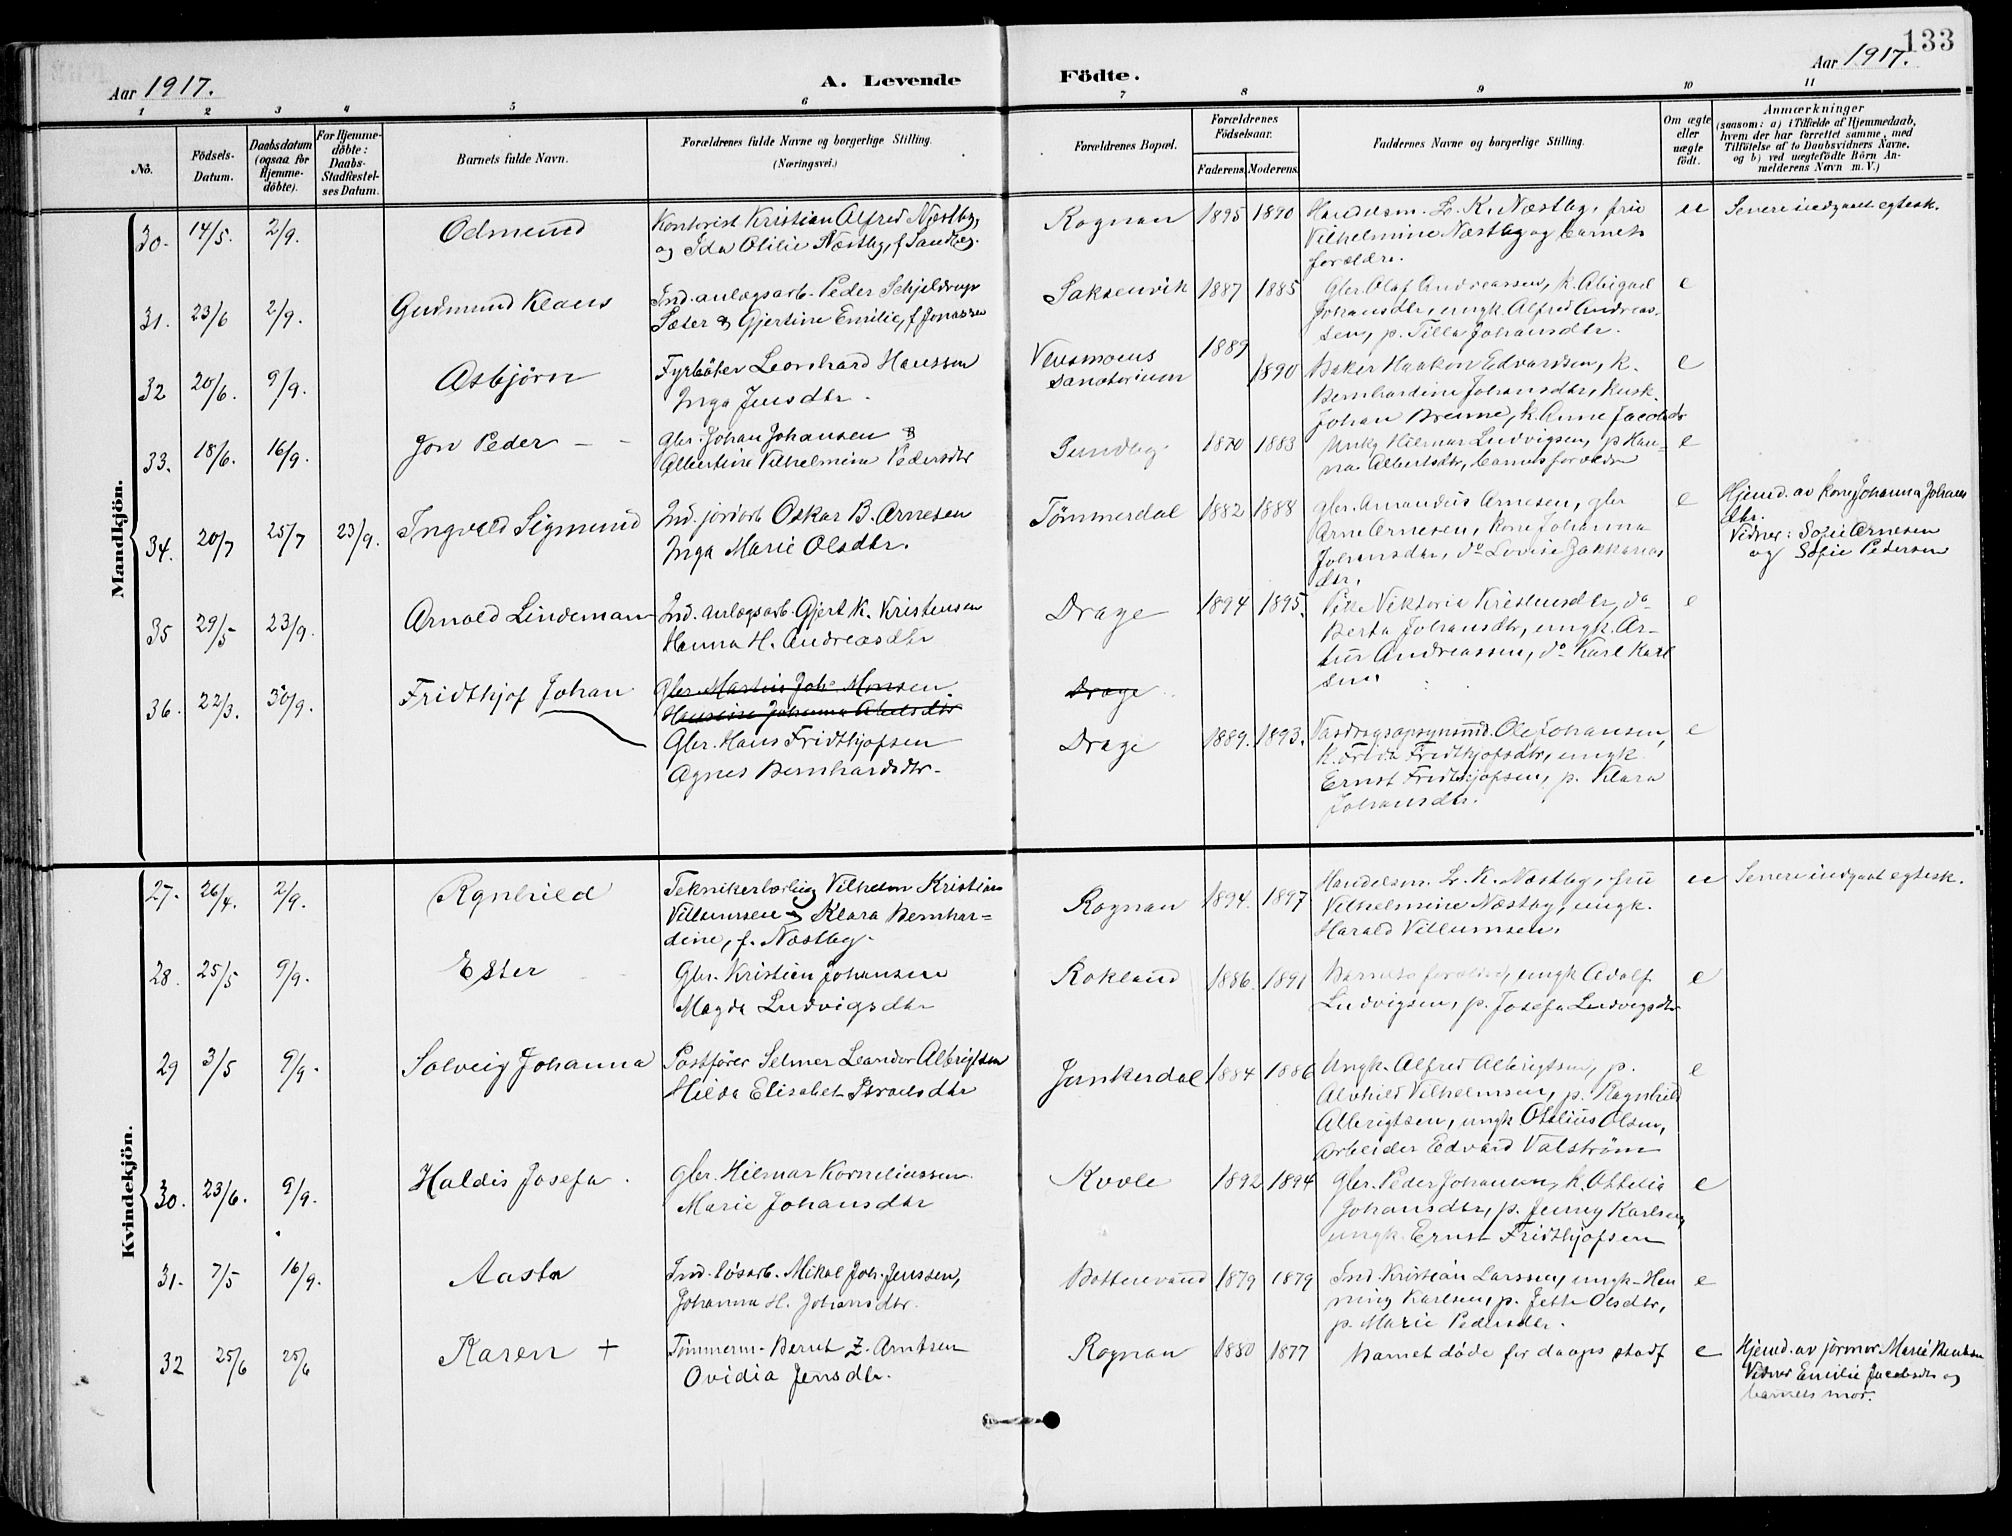 133
Aar 1917.
A. Levende Födte.
Aar 1917.
1 2 3 4 5 6 7 8 9 10 11
No.
Födsels-Datum.
Daabsdatum (ogsaa for Hjemme-döbte).
For Hjemme-döbte: Daabs-Stadfæstel-ses Datum.
Barnets fulde Navn.
Forældrenes fulde Navne og borgerlige Stilling.
(Næringsvei.)
Forældrenes Bopæl.
Forældrenes Födselsaar.
Faderens. Moderens.
Faddernes Navne og borgerlige Stilling.
Om ægte eller uægte födt.
Anmærkninger
(saasom: a) i Tilfælde af Hjemmedaab,
hvem der har forrettet samme, med
Tilföielse af to Daabsvidners Navne,
og b) ved uægtefödte Börn An-
melderens Navn m. V.)
Mandkjön.
30. 14/5. 2/9. Odmund
Kontorist Kristian Alfred Næstby,
og Ida Otilie Næstby, f. Sandberg.
Rognan 1895 1890
Handelsm. L. K. Næstby, fru
Vilhelmine Næstby og barnets
forældre.
u Senere indgaaet egtesk.
31. 23/6 2/9. Gudmund Klaus
Ind. anlægsarb. Peder Schjeldrup
Sæter & Gjertine Emilie, f. Jonassen
Saksenvik 1887 1885
Gbr. Olaf Andreassen, k. Abigael
Johansdtr, ungk. Alfred Andreas-
sen, p. Tilla Johansdtr.
e
32 20/6. 9/9. Asbjörn
Fyrböter Leonhard Hanssen
Inga Jensdtr.
Vensmoens
Sanatorium 1889 1890
Baker Haakon Edvardsen, k.
Bernhardine Johansdtr, Kusk
Johan Brenne, k. Anne Jacobsdtr
e
33. 18/6. 16/9. Jon Peder
Gbr. Johan Johansen &
Albertine Vilhelmine Pedersdtr
Sundby 1870 1883
Ungk Hilmar Ludvigsen, p Han-
na Albertsdtr, barnets forældre
e
34. 20/7 25/7 23/9. Ingvald Sigmund
Ind. jordarb Oskar B. Arnesen
Inga Marie Olsdtr.
Tømmerdal 1882 1888
gbr. Amandus Arnesen, gbr
Arne Arnesen, kone Johanna
Johansdtr, do Lovise Zakkarias
dtr.
e
Hjemd. av kone Johanna Johans
dtr.
Vidner: Sofie Arnesen
og Sofie Pedersen
35 29/5 23/9. Arnold Lindeman
Ind. anlægsarb. Gjert K. Kristensen
Hanna H. Andreasdtr
Drage 1894 1895.
Pike Viktoria Kristensdtr, do
Berta Johansdtr, ungk. Ar-
tur Andreassen, do Karl Karl
sen
e
36. 22/3. 30/9. Fridthjof Johan
Gbr. Martin Joh. Monsen
Hansine Johanna Abelsdtr
Drage
Gbr. Hans Fridthjofsen
Agnes Bernhardsdtr.
Drage 1889. 1893.
Vasdragsopsynsmd. Ole Johansen,
k. Frida Fridthjofsdtr, ungk.
Ernst Fridthjofsen, p. Klara
Johansdtr.
e
Kvindekjön.
27. 26/4. 2/9. Agnhild
Teknikerlærling Vilhelm Kristian
Villumsen & Klara Bernhar-
dine, f. Næstby.
Rognan 1894. 1897
Handelsm. L. K. Næstby, fru
Vilhelmine Næstby, ungk.
Harald Villumsen.
u Senere indgaaet egtesk.
28. 25/5 9/9. Ester
Gbr. Kristian Johansen
Magda Ludvigsdtr
Rokland 1886. 1891
Barnets forældre, ungk Adolf
Ludvigsen, p. Josefa Ludvigsdtr
e
29 3/5 9/9. Solveig Johanna
Postfører Selmer Leander Albrigtsen
Hilda Elisabet Israelsdtr
Junkerdal 1884 1886
Ungk. Alfred Albrigtsen, p.
Alvhild Vilhelmsen, p. Ragnhild
Albrigtsen, ungk. Otelius Olsen,
Arbeider Edvard Valström
e
30. 23/6. 9/9. Haldis Josefa
gbr. Hilmar Korneliussen
Marie Johansdtr
Kvæle 1892 1894
Gbr. Peder Johansen, k. Ottelia
Johansdtr, p. Jenny Karlsen,
ungk. Ernst Fridthjofsen
e
31. 7/5 16/9. Aasta
Ind. løsarb. Mikal Joh. Jenssen,
Johanna H. Johansdtr.
Bottenvand 1879 1879
Ind. Kristian Larssen, ungk. Hen
ning Karlsen, p. Jette Olsdtr,
p. Marie Pedersdtr.
e
32 25/6 25/6 Karen +
Tömmerm. Bernt Z. Arntsen
Ovidia Jensdtr.
Rognan 1880 1877
Barnet döde før daaps stadf
e
Hjemd. av jormor Marie Bentsen
Vidner Emilie Jacobsdtr og
barnets mor.